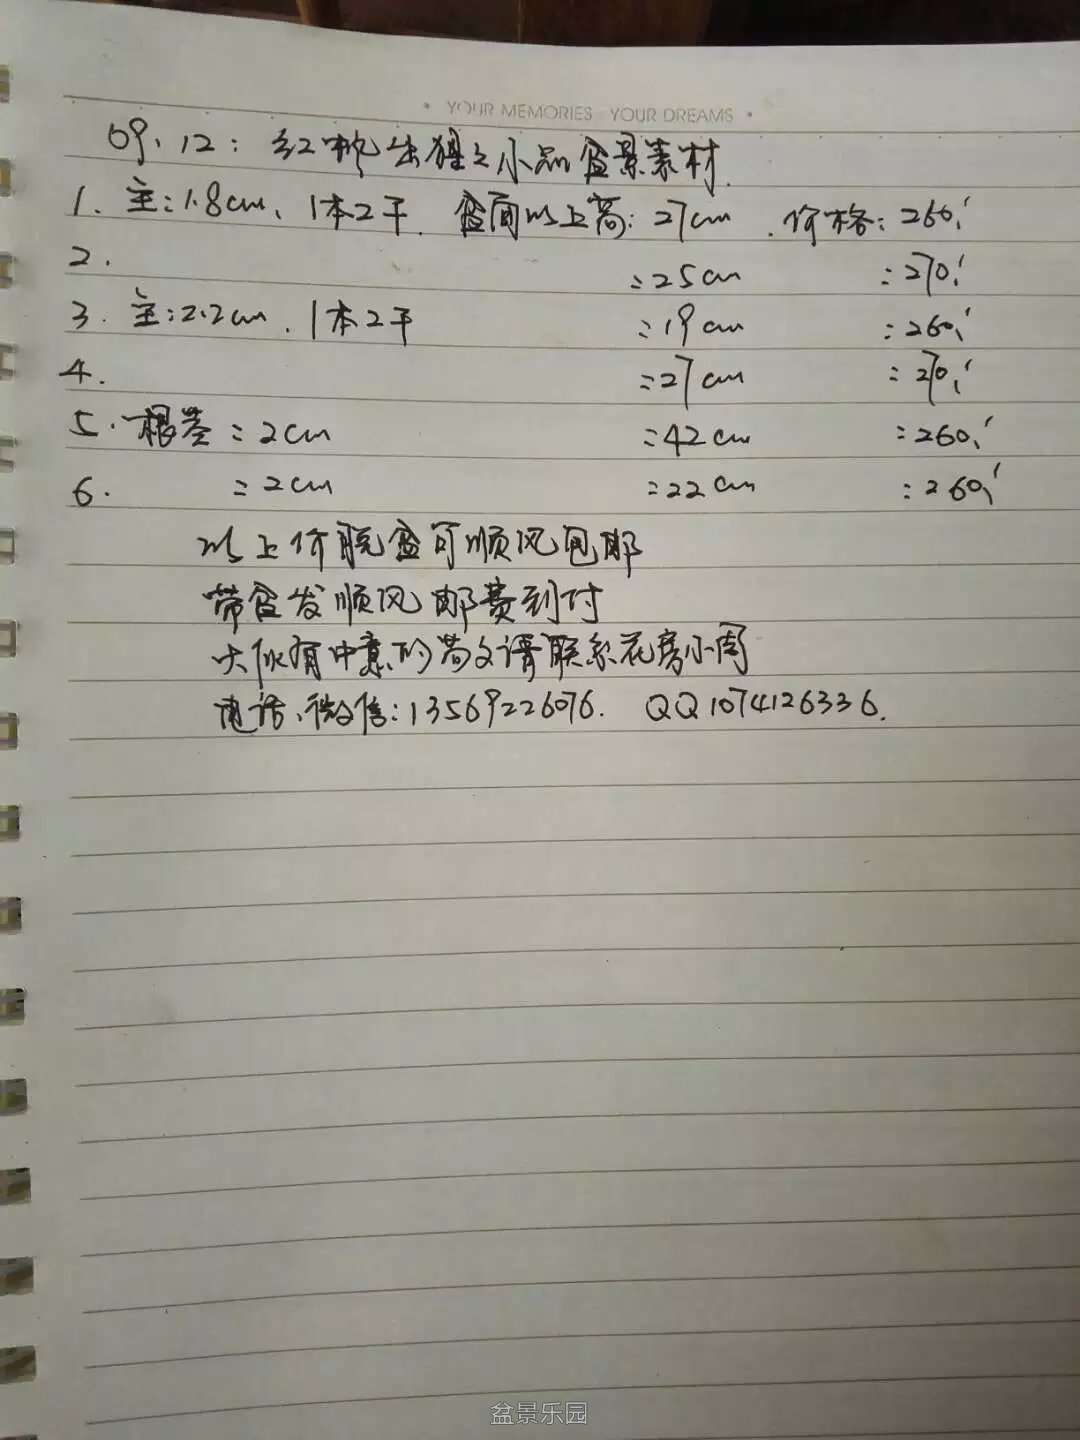 YOUR MEMORIES YOUR DREAMS
09.12: 红枫出猩之小品盆景素材.
1. 主:1.8cm、1本2干. 盆面以上高: 27cm. 价格: 260,
2. :25cm :270,
3. 主:2.2cm、1本2干 :19cm :260,
4. :27cm :270,
5. 根茎:2cm :42cm :260,
6. :2cm :22cm :260,
以上价脱盆可顺风包邮
带盆发顺风邮费到付
大伙有中意的苗又请联系花房小周
电话、微信:13569226076. QQ1074126336.
盆景乐园